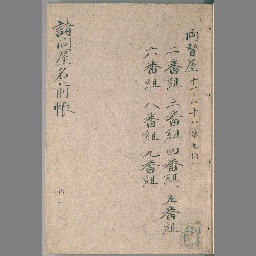 両替屋
二番組 三番組 四番組 五番組
六番組 八番組 九番組
諸問屋名前帳